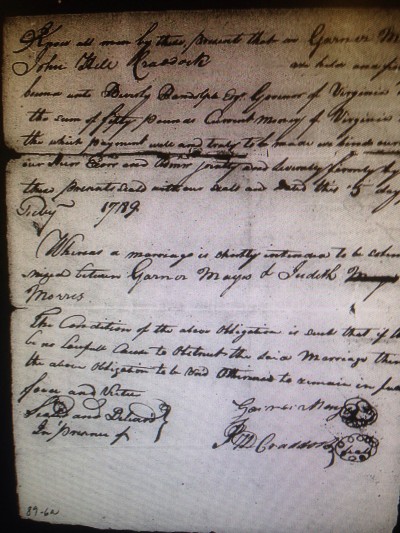 Know all men by these presents that we Garner M
John Hill Craddock are held and fir
bound unto Beverly Randolph Esqr. Governor of Virginia
the sum of fifty Pounds Current Money of Virginia
the which payment well and truly to be made we binds our
our Heirs Exors and Admrs jointly and severally firmly by
these Presents Seald with our Seals and dated this 5 day
Feby 1789
Whereas a marriage is shortly intended to be solem
nized between Garner Mayo & Judith
Morris
The Condition of the above Obligation is such that if th
be no Lawfull Cause to Obstruct the said Marriage then
the above Obligation to be Void Otherwise to remain in full
force and Virtue
Seald and Deliverd
In presence of
Garner Mayo
Craddock seal
89-6a